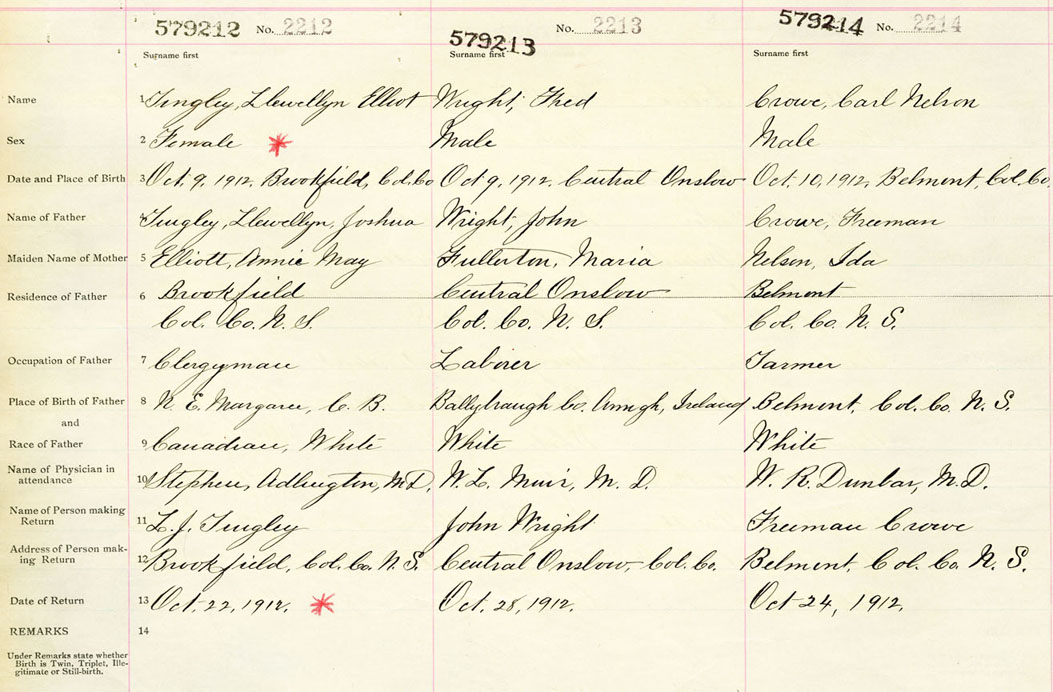 579212 No. 2212 579213 No. 2213 579214 No. 2214
Surname first Surname first Surname first
Name 1 Tingley, Llewellyn Elliot Wright, Fred Crowe, Carl Nelson
Sex 2 Female * Male Male
Date and Place of Birth 3 Oct. 9, 1912, Brookfield, Col. Co Oct 9, 1912, Central Onslow Oct. 10, 1912, Belmont, Col. Co.
Name of Father 4 Tingley, Llewellyn, Joshua Wright, John Crowe, Freeman
Maiden Name of Mother 5 Elliott, Annie May Fullerton, Maria Nelson, Ida
Residence of Father 6 Brookfield Central Onslow Belmont
Col. Co. N. S. Col. Co. N. S. Col. Co. N. S.
Occupation of Father 7 Clergyman Laborer Farmer
Place of Birth of Father 8 N. E. Margaree, C. B. Ballybraugh Co. Armgh, Ireland Belmont, Col. Co. N. S.
and
Race of Father 9 Canadian, White White White
Name of Physician in
attendance 10 Stephen, Adlington, M.D. W. L. Muir, M. D. W. R. Dunbar, M.D.
Name of Person making
Return 11 L. J. Tingley John Wright Freeman Crowe
Address of Person mak-
ing Return 12 Brookfield, Col. Co. N. S. Central Onslow, Col. Co. Belmont, Col. Co. N. S.
Date of Return 13 Oct. 22, 1912. * Oct. 28, 1912. Oct 24, 1912,
REMARKS 14
Under Remarks state whether
Birth is Twin, Triplet, Ille-
gitimate or Still-birth.